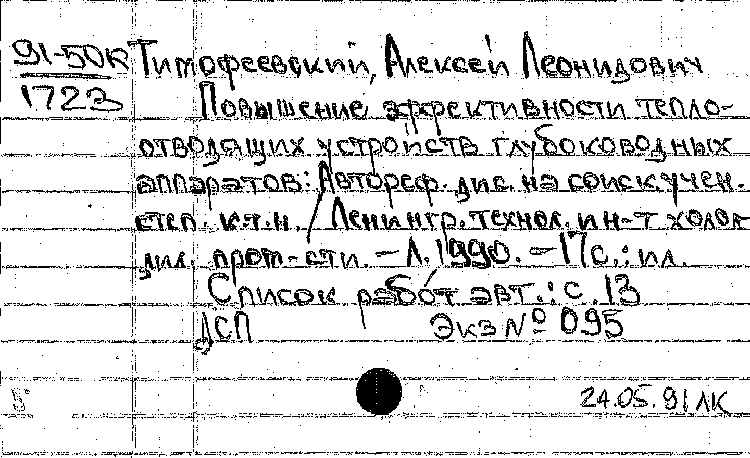 91-50К Тимофеевский, Алексей Леонидович
1723 Повышение эффективности тепло-
отводящих устройств глубоководных
аппаратов: Автореф. дис. на соиск. учен.
степ. к.т.н. / Ленингр. технол. ин-т холо
дил. пром-сти. - Л. 1990. - 17 с. : ил.
Список работ авт.: с. 13
ДСП Экз № 095
24.05.91 ЛК